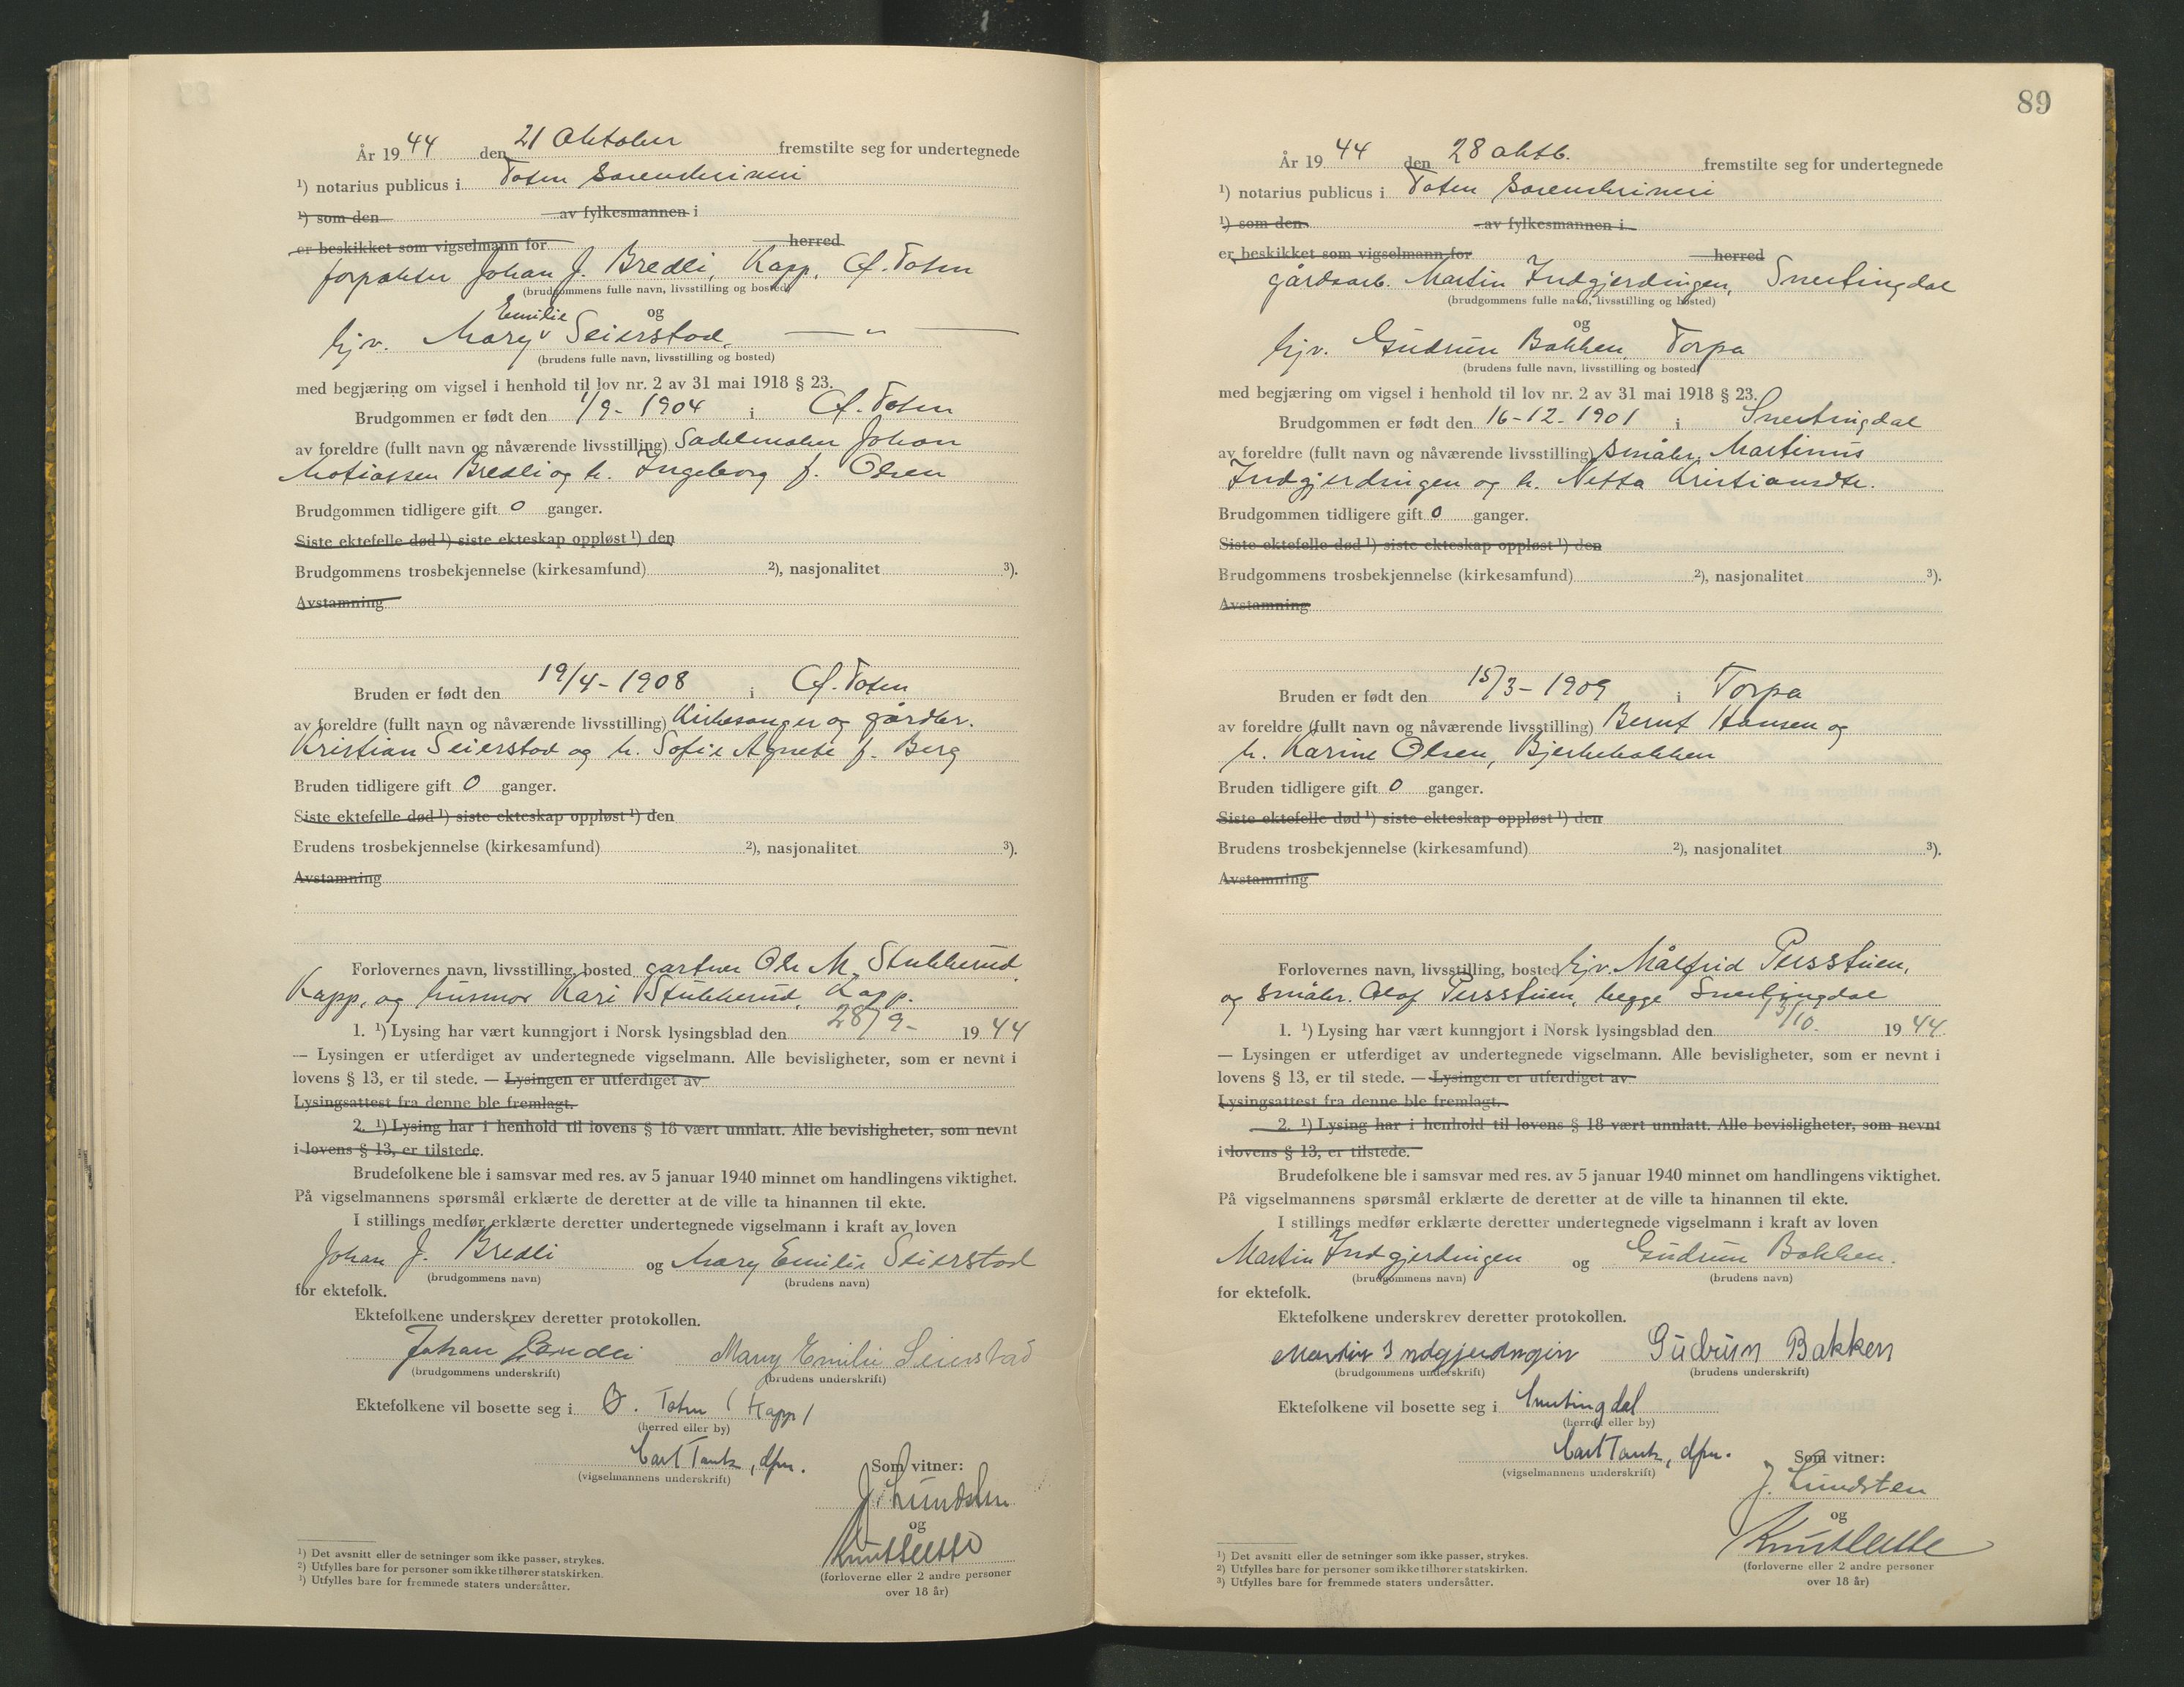 År 19 44 den 21 Oktober fremstilte seg for undertegnede
¹) notarius publicus i Toten Sorenskriveri
¹) som den av fylkesmannen i
er beskikket som vigselmann for herred
forpakter Johan J. Bredli, Kapp, Ø. Toten
(brudgommens fulle navn, livsstilling og bosted)
Emilie
og
hjv. Mary v Seierstad, — " —
(brudens fulle navn, livsstilling og bosted)
med begjæring om vigsel i henhold til lov nr. 2 av 31 mai 1918 § 23.
Brudgommen er født den 1/9- 1904 i Ø. Toten
av foreldre (fullt navn og nåværende livsstilling) Sadelmaker Johan
Matiassen Bredli og h. Ingeborg f. Olsen
Brudgommen tidligere gift 0 ganger.
Siste ektefelle død ¹) siste ekteskap oppløst ¹) den
Brudgommens trosbekjennelse (kirkesamfund) ²), nasjonalitet ³).
Avstamning
Bruden er født den 19/4-1908 i Ø. Toten
av foreldre (fullt navn og nåværende livsstilling) Kirkesanger og gårdbr.
Kristian Seierstad og h. Sofie Agnete f. Berg
Bruden tidligere gift 0 ganger.
Siste ektefelle død ¹) siste ekteskap oppløst ¹) den
Brudens trosbekjennelse (kirkesamfund) ²), nasjonalitet ³).
Avstamning
Forlovernes navn, livsstilling, bosted gartner Ole M. Stubberud
Kapp, og husmor Kari Stubberud, Kapp.
1. ¹) Lysing har vært kunngjort i Norsk lysingsblad den 28/9- 19 44
— Lysingen er utferdiget av undertegnede vigselmann. Alle bevisligheter, som er nevnt i
lovens § 13, er til stede. — Lysingen er utferdiget av
Lysingsattest fra denne ble fremlagt.
2. ¹) Lysing har i henhold til lovens § 18 vært unnlatt. Alle bevisligheter, som nevnt
i lovens § 13, er tilstede.
Brudefolkene ble i samsvar med res. av 5 januar 1940 minnet om handlingens viktighet.
På vigselmannens spørsmål erklærte de deretter at de ville ta hinannen til ekte.
I stillings medfør erklærte deretter undertegnede vigselmann i kraft av loven
Johan J. Bredli og Mary Emilie Seierstad
(brudgommens navn) (brudens navn)
for ektefolk.
Ektefolkene underskrev deretter protokollen.
Johan Bredli Mary Emilie Seierstad
(brudgommens underskrift) (brudens underskrift)
Ektefolkene vil bosette seg i Ø. Toten (Kapp)
(herred eller by)
Carl Tank, dfm.
(vigselmannens underskrift)
Som vitner:
J. Lundsten
og
(forloverne eller 2 andre personer
over 18 år)
¹) Det avsnitt eller de setninger som ikke passer, strykes.
²) Utfylles bare for personer som ikke tilhører statskirken.
³) Utfylles bare for fremmede staters undersåtter.
89
År 19 44 den 28 oktb. fremstilte seg for undertegnede
¹) notarius publicus i Toten Sorenskriveri
¹) som den av fylkesmannen i
er beskikket som vigselmann for herred
gårdsarb. Martin Indgjerdingen, Snertingdal
(brudgommens fulle navn, livsstilling og bosted)
og
hjv. Gudrun Bakken, Torpa
(brudens fulle navn, livsstilling og bosted)
med begjæring om vigsel i henhold til lov nr. 2 av 31 mai 1918 § 23.
Brudgommen er født den 16-12-1901 i Snertingdal
av foreldre (fullt navn og nåværende livsstilling) småbr. Martinus
Indgjerdingen og h. Netta Kristiansdtr.
Brudgommen tidligere gift 0 ganger.
Siste ektefelle død ¹) siste ekteskap oppløst ¹) den
Brudgommens trosbekjennelse (kirkesamfund) ²), nasjonalitet ³).
Avstamning
Bruden er født den 15/3-1909 i Torpa
av foreldre (fullt navn og nåværende livsstilling) Bernt Hansen og
h. Karine Olsen, Bjerkebakken
Bruden tidligere gift 0 ganger.
Siste ektefelle død ¹) siste ekteskap oppløst ¹) den
Brudens trosbekjennelse (kirkesamfund) ²), nasjonalitet ³).
Avstamning
Forlovernes navn, livsstilling, bosted hjv. Målfrid Persstuen,
og småbr. Olaf Persstuen, begge Snertingdal
1. ¹) Lysing har vært kunngjort i Norsk lysingsblad den /10. 19 44.
— Lysingen er utferdiget av undertegnede vigselmann. Alle bevisligheter, som er nevnt i
lovens § 13, er til stede. — Lysingen er utferdiget av
Lysingsattest fra denne ble fremlagt.
2. ¹) Lysing har i henhold til lovens § 18 vært unnlatt. Alle bevisligheter, som nevnt
i lovens § 13, er tilstede.
Brudefolkene ble i samsvar med res. av 5 januar 1940 minnet om handlingens viktighet.
På vigselmannens spørsmål erklærte de deretter at de ville ta hinannen til ekte.
I stillings medfør erklærte deretter undertegnede vigselmann i kraft av loven
Martin Indgjerdingen og Gudrun Bakken.
(brudgommens navn) (brudens navn)
for ektefolk.
Ektefolkene underskrev deretter protokollen.
Martin Indgjerdingen Gudrun Bakken
(brudgommens underskrift) (brudens underskrift)
Ektefolkene vil bosette seg i Snertingdal
(herred eller by)
Carl Tank, dfm.
(vigselmannens underskrift)
Som vitner:
J. Lundsten
og
(forloverne eller 2 andre personer
over 18 år)
¹) Det avsnitt eller de setninger som ikke passer, strykes.
²) Utfylles bare for personer som ikke tilhører statskirken.
³) Utfylles bare for fremmede staters undersåtter.